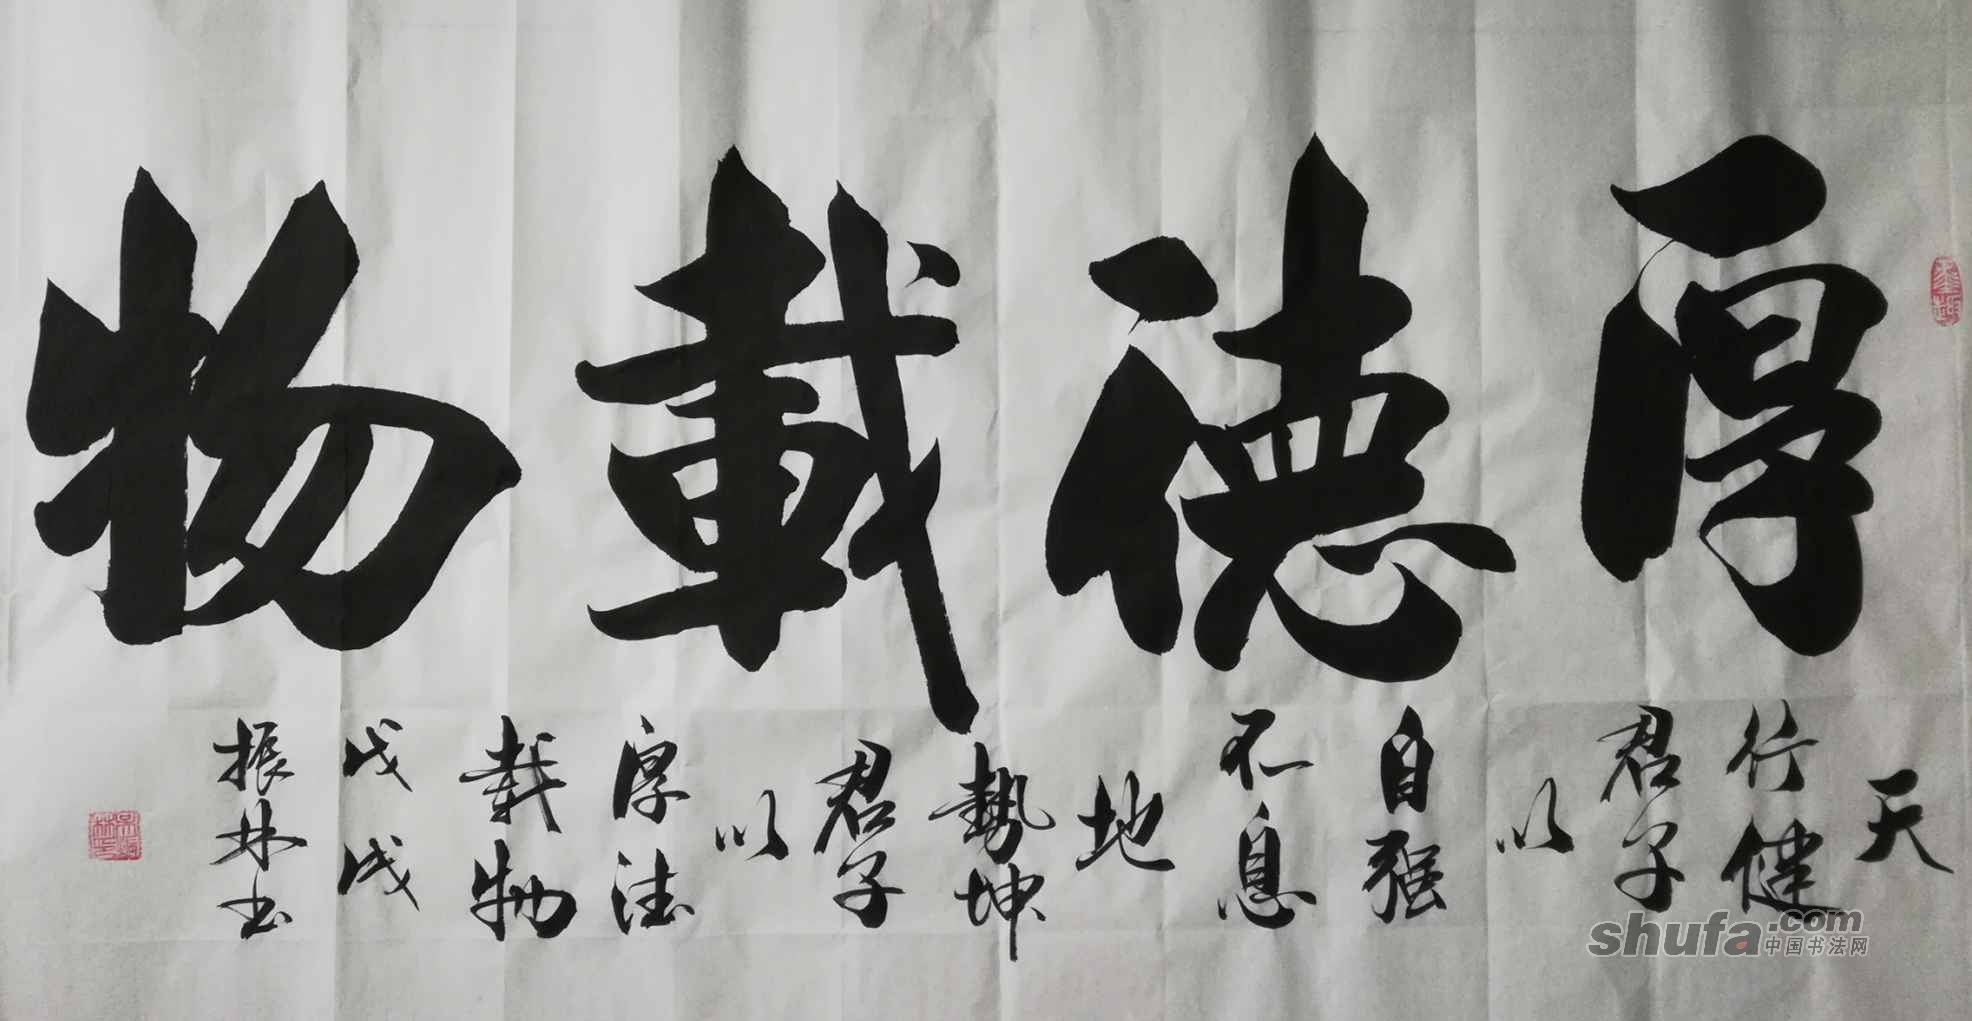 厚德載物
天
行健
君子
以
自强
不息
地
勢坤
君子
以
厚德
載物
戊戌
振林书
shufa.com
中国书法网